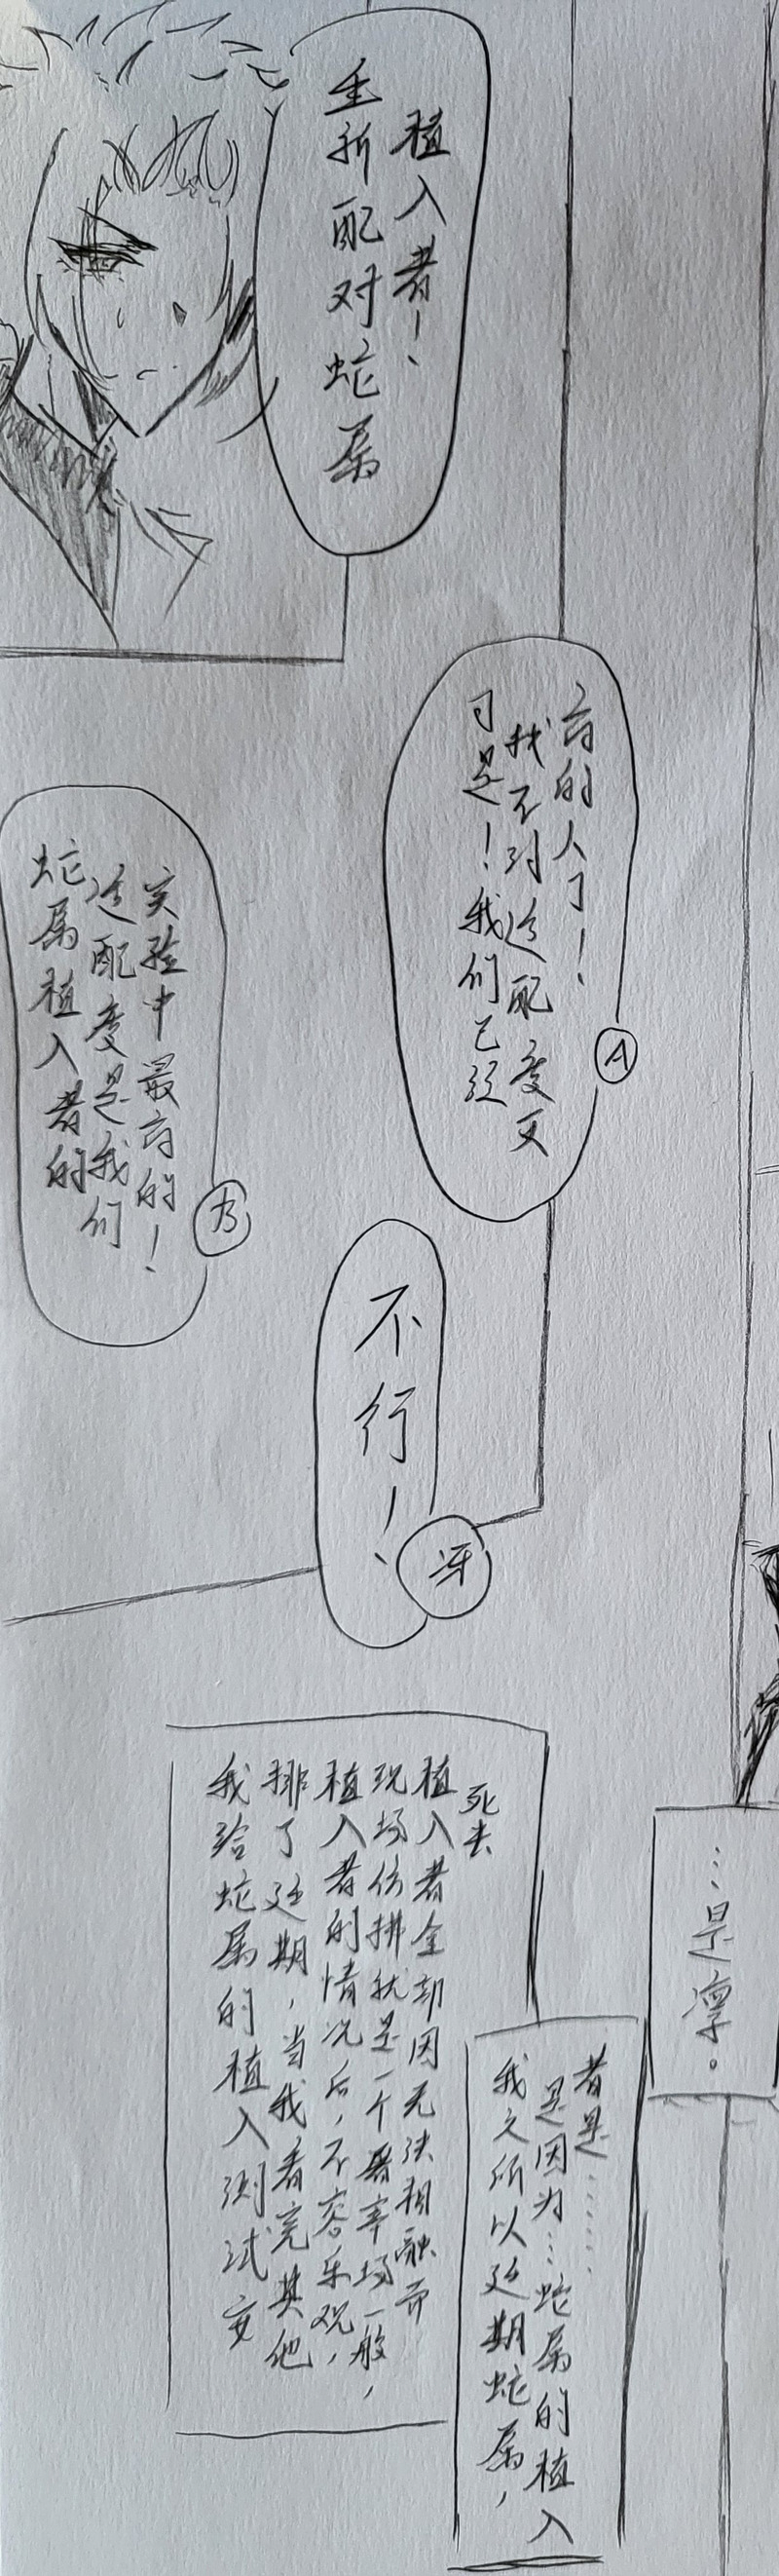 重新配对蛇属
植入者！
可是！我们已经
找不到适配度更
高的人了！
A
蛇属植入者的
适配度是我们
实验中最高的！
不行！
冴
我给蛇属的植入测试安
排了延期，当我看完其他
植入者的情况后，不容乐观，
现场仿拂就是一个屠宰场一般，
植入者全却因无法相融而
死去
我之所以延期蛇属，
是因为…蛇属的植入
者是……
…是凛。